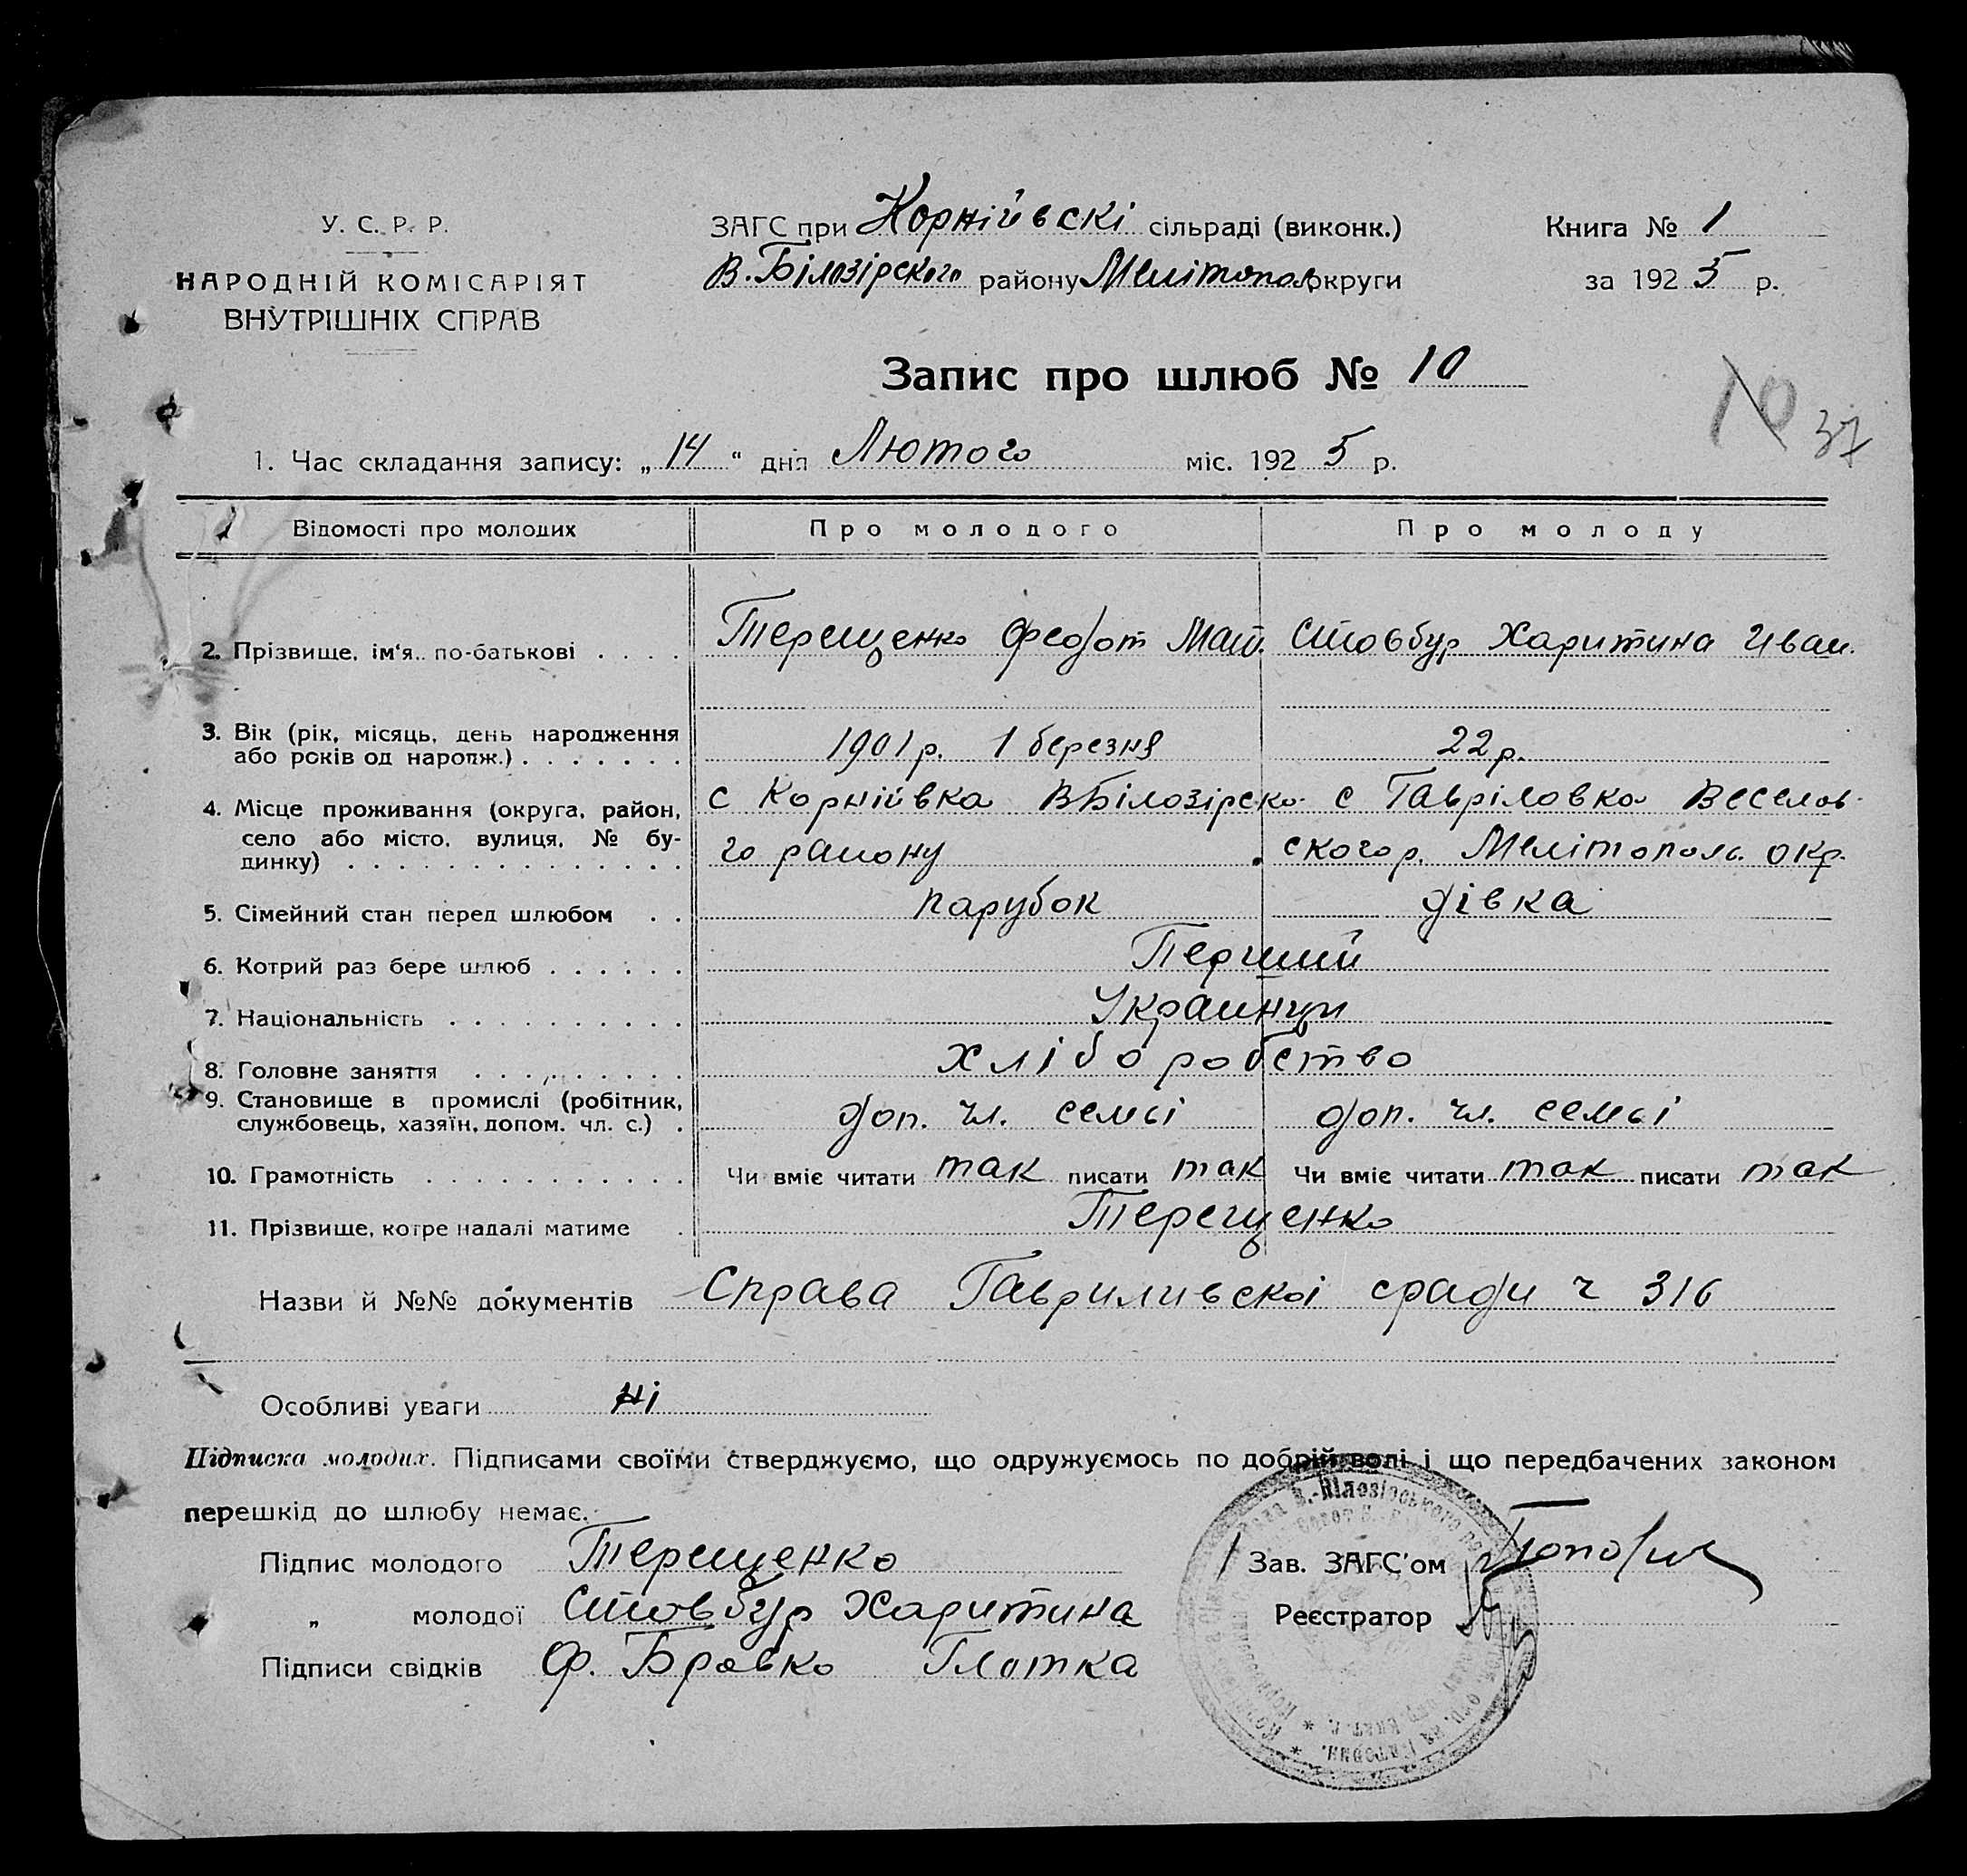 У. С. Р. Р.
НАРОДНІЙ КОМІСАРІЯТ
ВНУТРІШНІХ СПРАВ
ЗАГС при Корнійвскі сільраді (виконк.)
В. Білозірского району Мелітопол округи
Книга № 1
за 1925 р.
Запис про шлюб № 10
10 37
1. Час складання запису: „14“ дня Лютого міс. 1925 р.
Відомості про молодих Про молодого Про молоду
2. Прізвище, ім'я, по-батькові . . . . Терещенко Федот Мат. Стовбур Харитина Иван.
3. Вік (рік, місяць, день народження
або років од народж.) . . . . . . . 1901 р. 1 березня 22 р.
4. Місце проживання (округа, район, с Корнійвка ВБілозірско- с Гавріловка Веселов-
село або місто, вулиця, № бу- го району ского р. Мелітополь. окр.
динку) . . . . . . . . . . . . . .
5. Сімейний стан перед шлюбом . . парубок дівка
6. Котрий раз бере шлюб . . . . . . Перший
7. Національність . . . . . . . . . . Украинци
8. Головне заняття . . . . . . . . . хліборобство
9. Становище в промислі (робітник,
службовець, хазяїн, допом. чл. с.) . доп. чл. семьі доп. чл. семьі
10. Грамотність . . . . . . . . . . . Чи вміє читати так писати так Чи вміє читати так писати так
11. Прізвище, котре надалі матиме . Терещенко
Назви й №№ документів Справа Гавриливскоі сради ч 316
Особливі уваги ні
Підписка молодих. Підписами своїми стверджуємо, що одружуємось по добрій волі і що передбачених законом
перешкід до шлюбу немає.
Підпис молодого Терещенко
„ молодої Стовбур Харитина
Підписи свідків Ф. Бровко Глотка
Зав. ЗАГС'ом
Реєстратор
В.-Білозірського